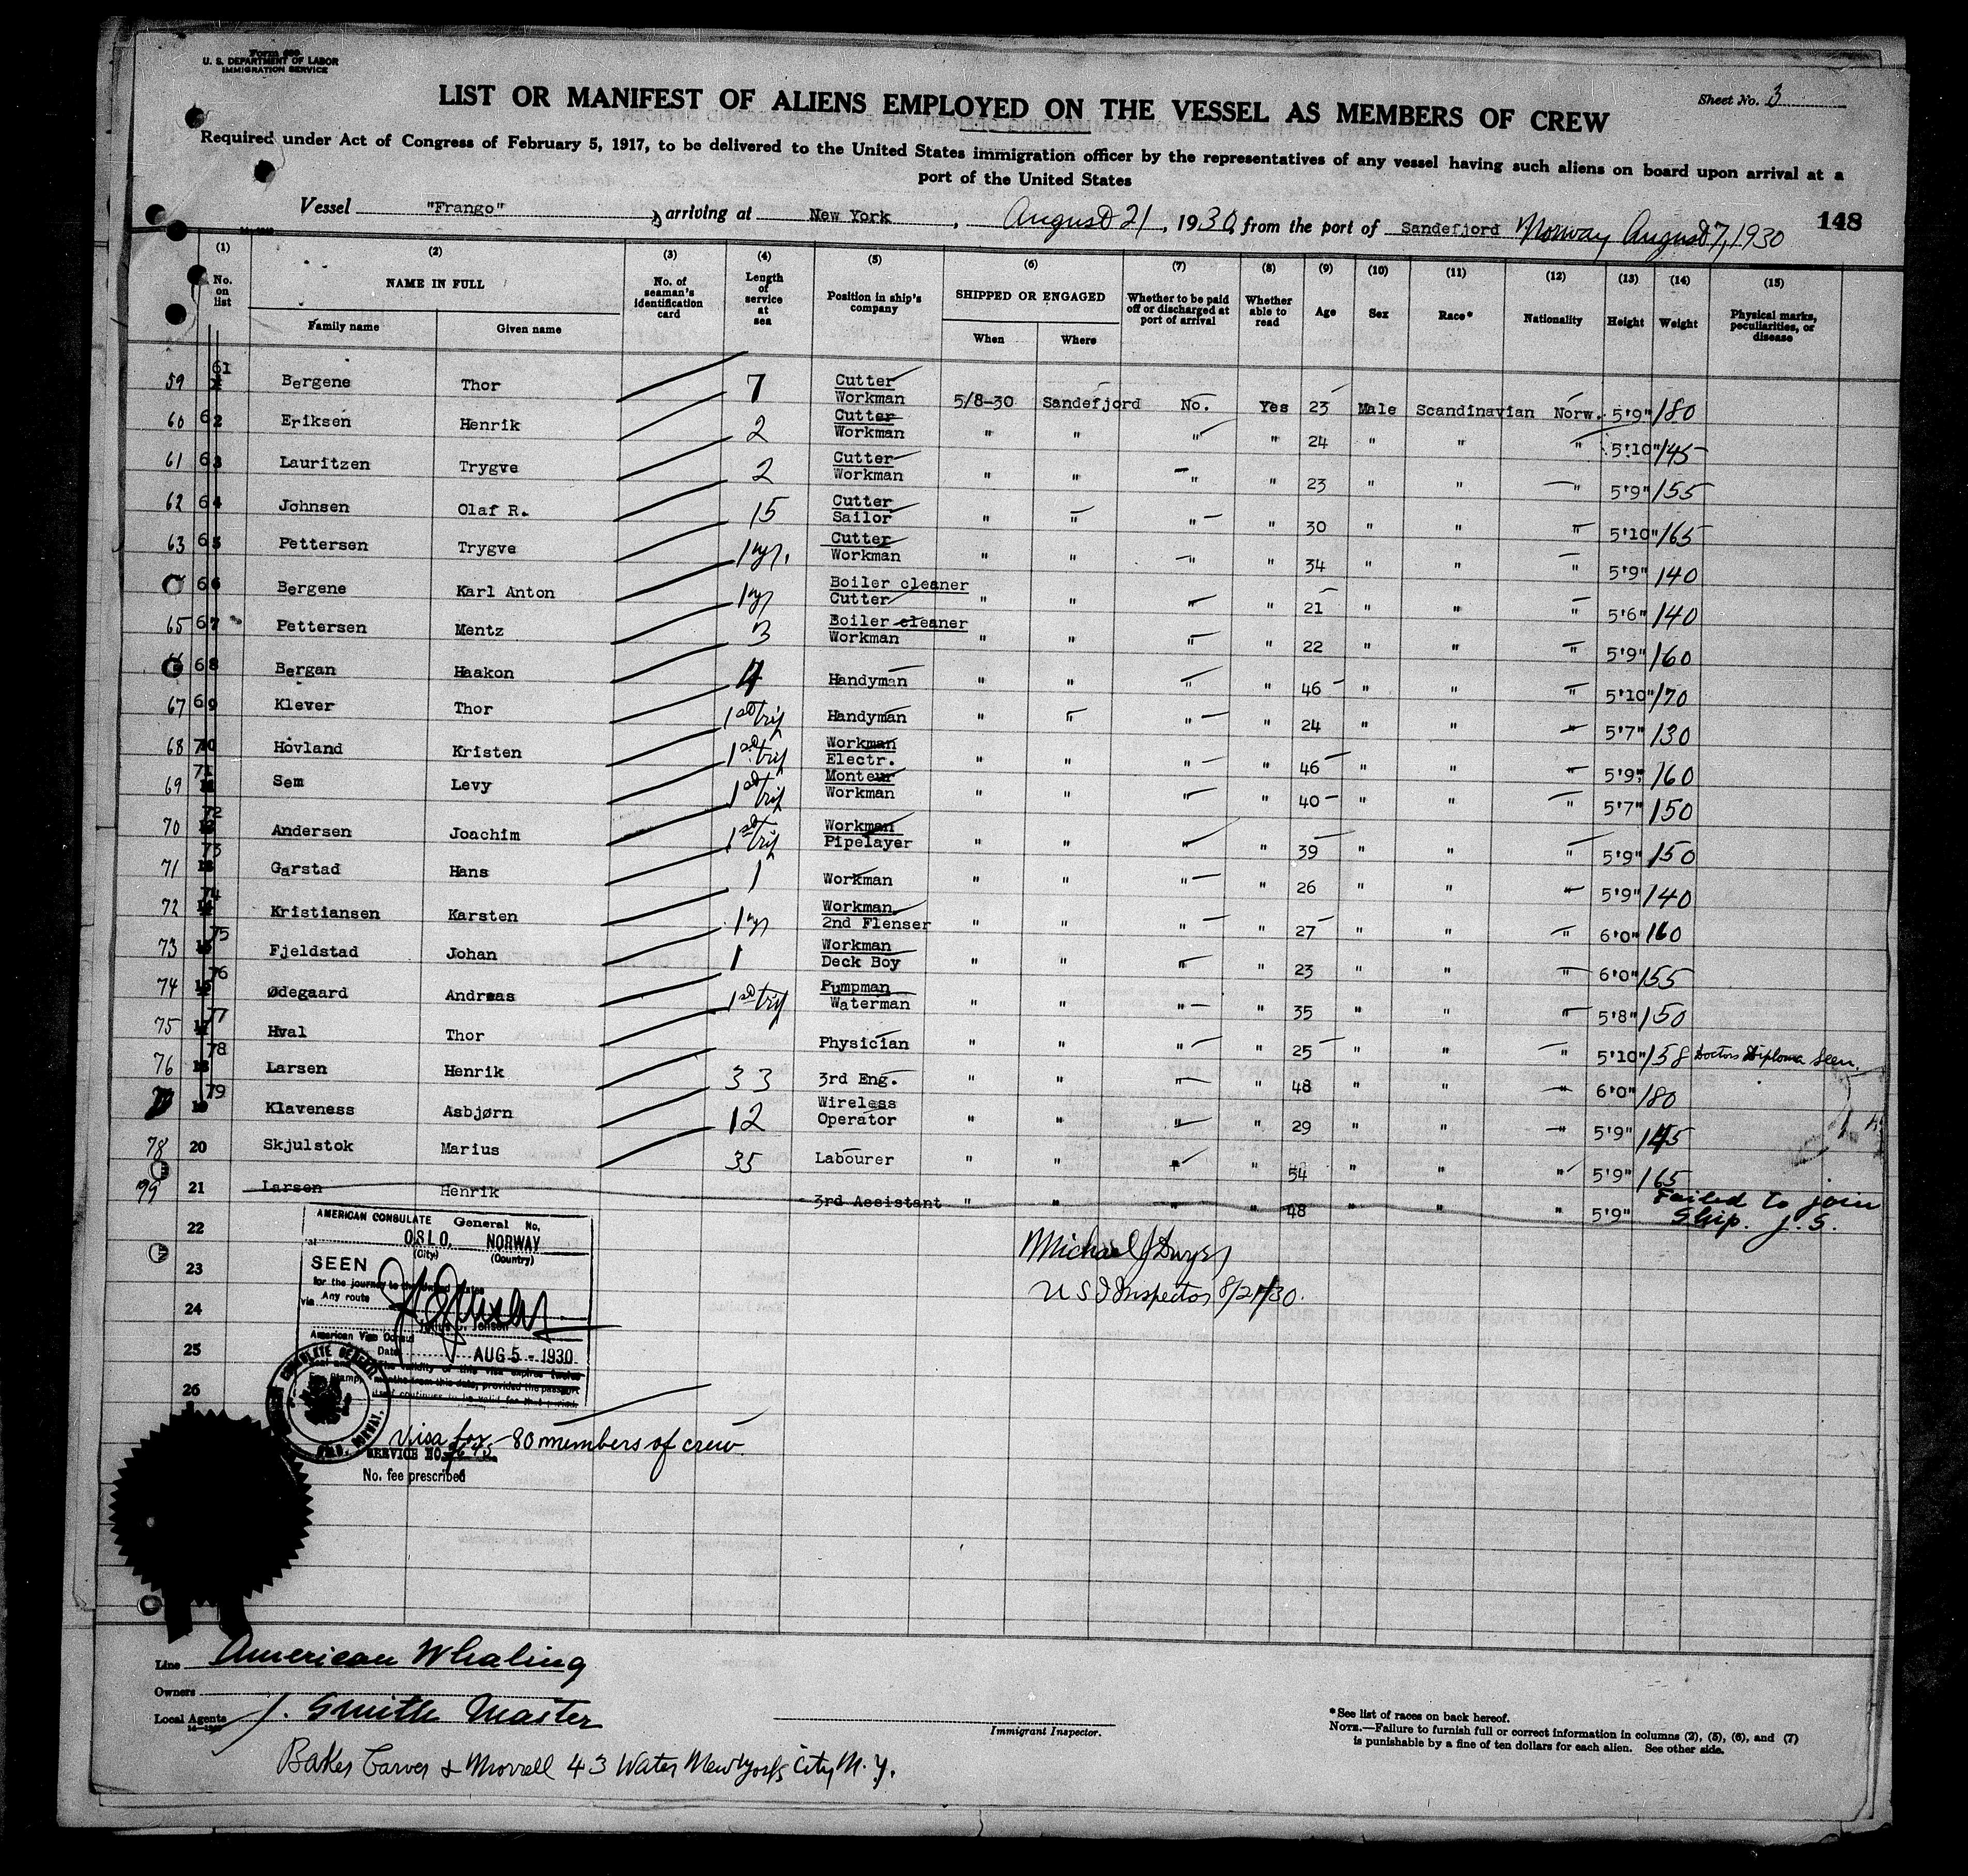 Form 689
U. S. DEPARTMENT OF LABOR
IMMIGRATION SERVICE
LIST OR MANIFEST OF ALIENS EMPLOYED ON THE VESSEL AS MEMBERS OF CREW
Sheet No. 3
Required under Act of Congress of February 5, 1917, to be delivered to the United States immigration officer by the representatives of any vessel having such aliens on board upon arrival at a
port of the United States
Vessel "Frango" arriving at New York, August 21, 1930, from the port of Sandefjord Norway August 7, 1930 148
(1) (2) (3) (4) (5) (6) (7) (8) (9) (10) (11) (12) (13) (14) (15)
No. on list NAME IN FULL No. of seaman's identification card Length of service at sea Position in ship's company SHIPPED OR ENGAGED Whether to be paid off or discharged at port of arrival Whether able to read Age Sex Race* Nationality Height Weight Physical marks, peculiarities, or disease
Family name Given name When Where
59 61 Bergene Thor 7 Cutter Workman 5/8-30 Sandefjord No. Yes 23 Male Scandinavian Norw. 5'9" 180
60 62 Eriksen Henrik 2 Cutter Workman " " " " 24 " " " 5'10" 145
61 63 Lauritzen Trygve 2 Cutter Workman " " " " 23 " " " 5'9" 155
62 64 Johnsen Olaf R. 15 Cutter Sailor " " " " 30 " " " 5'10" 165
63 65 Pettersen Trygve 1 yr. Cutter Workman " " " " 34 " " " 5'9" 140
66 Bergene Karl Anton 1 yr Boiler cleaner Cutter " " " " 21 " " " 5'6" 140
65 67 Pettersen Mentz 3 Boiler cleaner Workman " " " " 22 " " " 5'9" 160
68 Bergan Haakon 4 Handyman " " " " 46 " " " 5'10" 170
67 69 Klever Thor 1st trip Handyman " " " " 24 " " " 5'7" 130
68 70 Hovland Kristen 1st trip Workman Electr. " " " " 46 " " " 5'9" 160
69 71 Sem Levy 1st trip Monteur Workman " " " " 40 " " " 5'7" 150
70 72 Andersen Joachim 1st trip Workman Pipelayer " " " " 39 " " " 5'9" 150
71 73 Garstad Hans 1 Workman " " " " 26 " " " 5'9" 140
72 74 Kristiansen Karsten 1 yr Workman 2nd Flenser " " " " 27 " " " 6'0" 160
73 75 Fjeldstad Johan 1 Workman Deck Boy " " " " 23 " " " 6'0" 155
74 76 Ødegaard Andreas 1st trip Pumpman Waterman " " " " 35 " " " 5'8" 150
75 77 Hval Thor Physician " " " " 25 " " " 5'10" 158 Doctors Diploma Seen.
76 78 Larsen Henrik 33 3rd Eng. " " " " 48 " " " 6'0" 180
79 Klaveness Asbjørn 12 Wireless Operator " " " " 29 " " " 5'9" 145
78 20 Skjulstok Marius 35 Labourer " " " " 54 " " " 5'9" 165
79 21 Larsen Henrik 3rd Assistant " " " " 48 " " " 5'9" Failed to join
Ship. J. S.
22
23
24
25
26
AMERICAN CONSULATE General No.
at OSLO, NORWAY
(City) (Country)
SEEN
for the journey to the United States
via Any route
Julius C. Jensen
American Vice Consul
Date AUG 5 - 1930
The validity of this visa expires twelve
months from this date, provided the passport
itself continues to be valid for that period.
Visa for 80 members of crew
SERVICE NO.
No. fee prescribed
Michael J Dwyer
U S I Inspector 8/21/30.
Line American Whaling
Owners
Local Agents J. Smith Master
Baker Carver & Morrell 43 Water New York City N. Y.
Immigrant Inspector.
*See list of races on back hereof.
NOTE.—Failure to furnish full or correct information in columns (2), (5), (6), and (7)
is punishable by a fine of ten dollars for each alien. See other side.